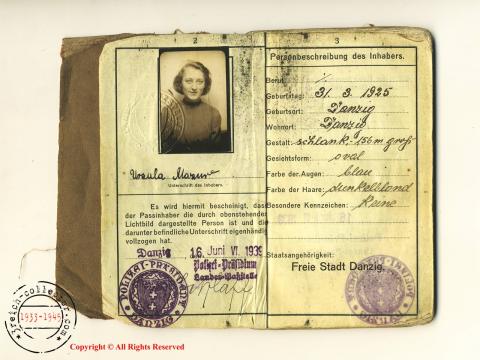 2
Ursula Mazur
Unterschrift des Inhabers.
Es wird hiermit bescheinigt, dass
der Passinhaber die durch obenstehendes
Lichtbild dargestellte Person ist und die
darunter befindliche Unterschrift eigenhändig
vollzogen hat.
Danzig
16. Juni 1939
Polizei-Präsidium
Landes-Paßstelle
POLIZEI-PRÄSIDENT
DANZIG
3
Personenbeschreibung des Inhabers.
Beruf:
Geburtstag: 31. 3. 1925
Geburtsort: Danzig
Wohnort: Danzig
Gestalt: schlank - 156 m groß
Gesichtsform: oval
Farbe der Augen: blau
Farbe der Haare: dunkelblond
Besondere Kennzeichen: Keine
Staatsangehörigkeit:
Freie Stadt Danzig.
DANZIG
3reich-collector.com
1933-1945
Copyright © All Rights Reserved